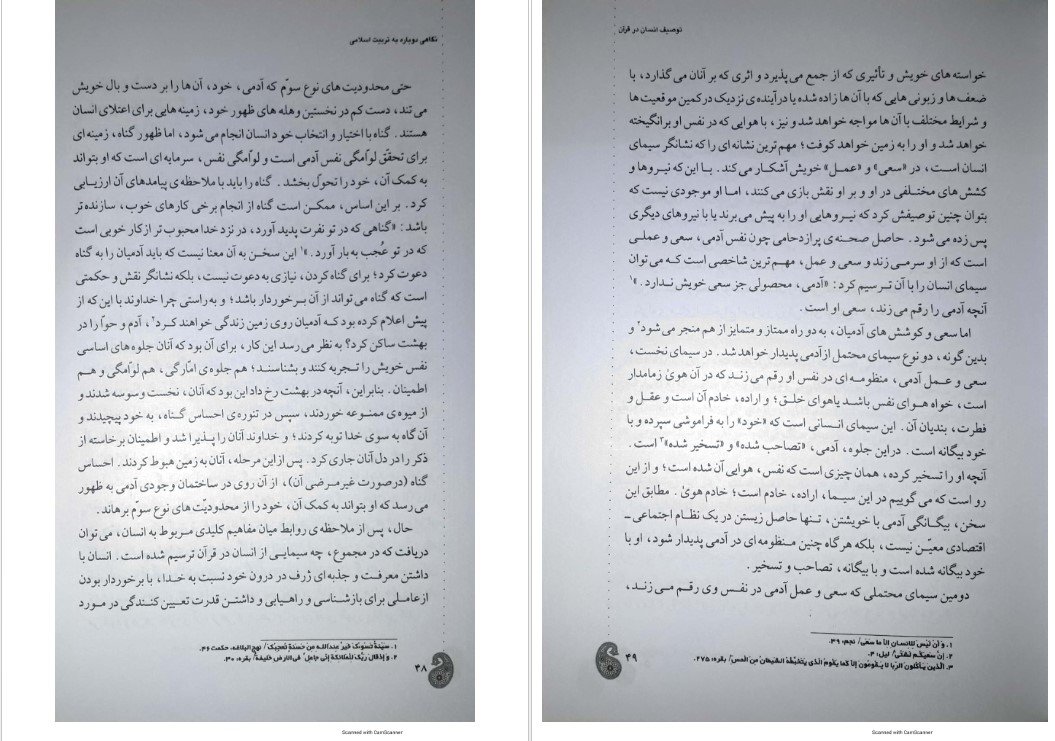 نگاهی دوباره به تربیت اسلامی
حتی محدودیت‌های نوع سوّم که آدمی، خود، آن‌ها را بر دست و بال خویش
می‌تند، دست کم در نخستین وهله‌های ظهور خود، زمینه‌هایی برای اعتلای انسان
هستند. گناه با اختیار و انتخاب خود انسان انجام می‌شود، اما ظهور گناه، زمینه‌ای
برای تحقّق لوّامگی نفس آدمی است و لوّامگی نفس، سرمایه‌ای است که او بتواند
به کمک آن، خود را تحوّل بخشد. گناه را باید با ملاحظه‌ی پیامدهای آن ارزیابی
کرد. بر این اساس، ممکن است گناه از انجام برخی کارهای خوب، سازنده‌تر
باشد: «گناهی که در تو نفرت پدید آورد، در نزد خدا محبوب‌تر از کار خوبی است
که در تو عُجب به بار آورد.»۱ این سخن به آن معنا نیست که باید آدمیان را به گناه
دعوت کرد؛ برای گناه کردن، نیازی به دعوت نیست، بلکه نشانگر نقش و حکمتی
است که گناه می‌تواند از آن برخوردار باشد؛ و به راستی چرا خداوند با این که از
پیش اعلام کرده بود که آدمیان روی زمین زندگی خواهند کرد۲، آدم و حوّا را در
بهشت ساکن کرد؟ به نظر می‌رسد این کار، برای آن بود که آنان جلوه‌های اساسی
نفس خویش را تجربه کنند و بشناسند؛ هم جلوه‌ی امّارگی، هم لوّامگی و هم
اطمینان. بنابراین، آنچه در بهشت رخ داد این بود که آنان، نخست وسوسه شدند و
از میوه‌ی ممنوعه خوردند، سپس در تنوره‌ی احساس گناه، به خود پیچیدند و
آن گاه به سوی خدا توبه کردند؛ و خداوند آنان را پذیرا شد و اطمینان برخاسته از
ذکر را در دل آنان جاری کرد. پس از این مرحله، آنان به زمین هبوط کردند. احساس
گناه (درصورت غیرمرضی آن)، از آن روی در ساختمان وجودی آدمی به ظهور
می‌رسد که او بتواند به کمک آن، خود را از محدودیّت‌های نوع سوّم برهاند.
حال، پس از ملاحظه‌ی روابط میان مفاهیم کلیدی مربوط به انسان، می‌توان
دریافت که در مجموع، چه سیمایی از انسان در قرآن ترسیم شده است. انسان با
داشتن معرفت و جذبه‌ای ژرف در درون خود نسبت به خدا، با برخوردار بودن
از عاملی برای بازشناسی و راهیابی و داشتن قدرت تعیین کنندگی در مورد
۱. سَیّئةٌ تَسوءُکَ خَیرٌ عِندَاللهِ مِن حَسَنَةٍ تُعجِبُکَ/ نهج البلاغه، حکمت ۴۶
۲. وَ إذقالَ رَبُّکَ لِلمَلائکَةِ إنّی جاعِلٌ فی‌الارضِ خَلیفَةً/ بقره: ۳۰.
۴۸
Scanned with CamScanner
توصیف انسان در قرآن
خواسته‌های خویش و تأثیری که از جمع می‌پذیرد و اثری که بر آنان می‌گذارد، با
ضعف‌ها و زبونی‌هایی که با آن‌ها زاده شده یا در آینده‌ی نزدیک در کمین موقعیت‌ها
و شرایط مختلف با آن‌ها مواجه خواهد شد و نیز، با هوایی که در نفس او برانگیخته
خواهد شد و او را به زمین خواهد کوفت؛ مهم‌ترین نشانه‌ای را که نشانگر سیمای
انسان است، در «سعی» و «عمل» خویش آشکار می‌کند. با این که نیروها و
کشش‌های مختلفی در او و بر او نقش بازی می‌کنند، اما او موجودی نیست که
بتوان چنین توصیفش کرد که نیروهایی او را به پیش می‌برند یا با نیروهای دیگری
پس زده می‌شود. حاصل صحنه‌ی پرازدحامی چون نفس آدمی، سعی و عملی
است که از او سرمی‌زند و سعی و عمل، مهم‌ترین شاخصی است که می‌توان
سیمای انسان را با آن ترسیم کرد: «آدمی، محصولی جز سعی خویش ندارد.»۱
آنچه آدمی را رقم می‌زند، سعی او است.
اما سعی و کوشش‌های آدمیان، به دو راه ممتاز و متمایز از هم منجر می‌شود۲ و
بدین گونه، دو نوع سیمای محتمل از آدمی پدیدار خواهد شد. در سیمای نخست،
سعی و عمل آدمی، منظومه‌ای در نفس او رقم می‌زند که در آن هویٰ زمامدار
است، خواه هوای نفس باشد یاهوای خلق؛ و اراده، خادم آن است و عقل و
فطرت، بندیان آن. این سیمای انسانی است که «خود» را به فراموشی سپرده و با
خود بیگانه است. در این جلوه، آدمی، «تصاحب شده» و «تسخیر شده»۳ است.
آنچه او را تسخیر کرده، همان چیزی است که نفس، هوایی آن شده است؛ و از این
رو است که می‌گوییم در این سیما، اراده، خادم است؛ خادم هویٰ. مطابق این
سخن، بیگانگی آدمی با خویشتن، تنها حاصل زیستن در یک نظام اجتماعی ـ
اقتصادی معیّن نیست، بلکه هرگاه چنین منظومه‌ای در آدمی پدیدار شود، او با
خود بیگانه شده است و با بیگانه، تصاحب و تسخیر.
دومین سیمای محتملی که سعی و عمل آدمی در نفس وی رقم می‌زند،
۱. وَ أن لَیسَ لِلانسانِ الّا ما سَعیٰ/ نجم: ۳۹.
۲. إنَّ سَعیَکُم لَشَتّیٰ/ لیل: ۴.
۳. الّذینَ یَأکُلونَ الرِّبا لا یَقومُونَ إلّا کَما یَقومُ الّذی یَتَخَبَّطُهُ الشَّیطانُ مِنَ المَسِّ/ بقره: ۲۷۵.
۴۹
Scanned with CamScanner